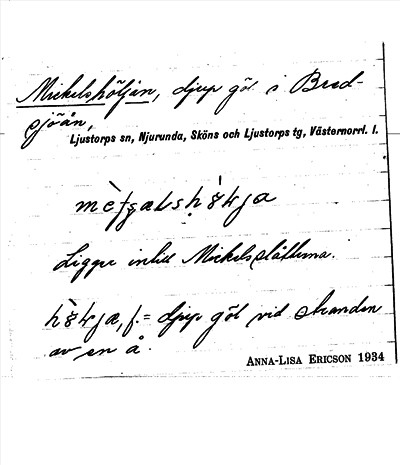 Mickelshöljan, djup göl i Bred-
sjöån,
Ljustorps sn, Njurunda, Sköns och Ljustorps tg, Västernorrl. l.
Ligger intill Mickelslåtterna.
f. = djup göl vid stranden
av en å.
ANNA-LISA ERICSON 1934